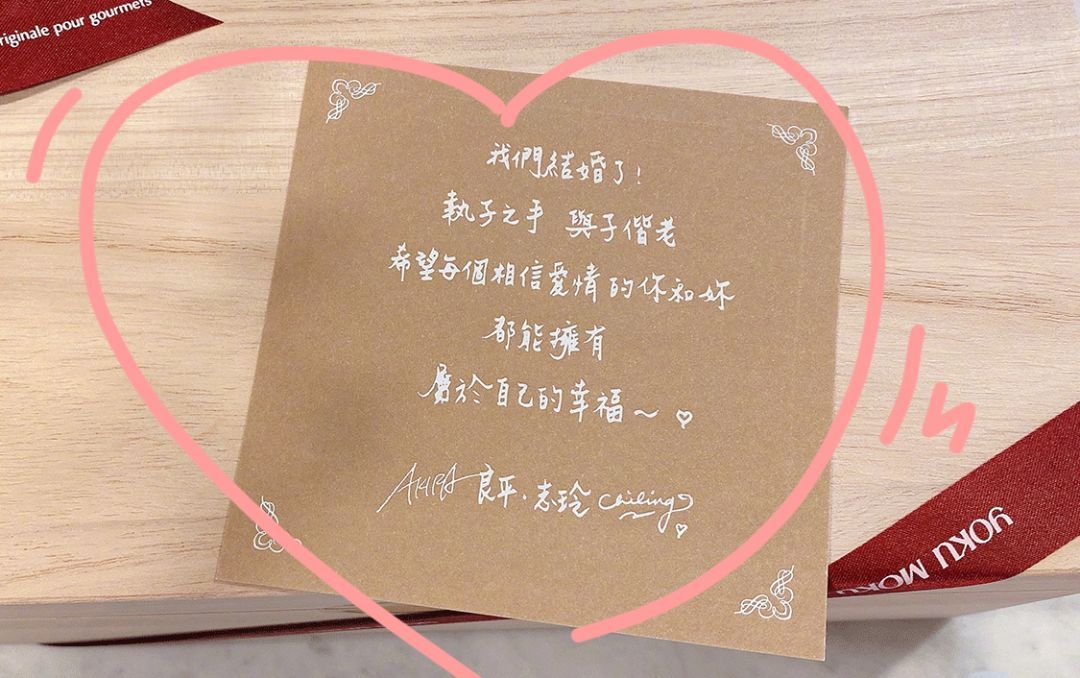 riginale pour gourmets
我們結婚了!
執子之手 與子偕老
希望每個相信愛情的你和妳
都能擁有
屬於自己的幸福~♡
AKIRA 良平·志玲 Chiling
YOKU MOKU